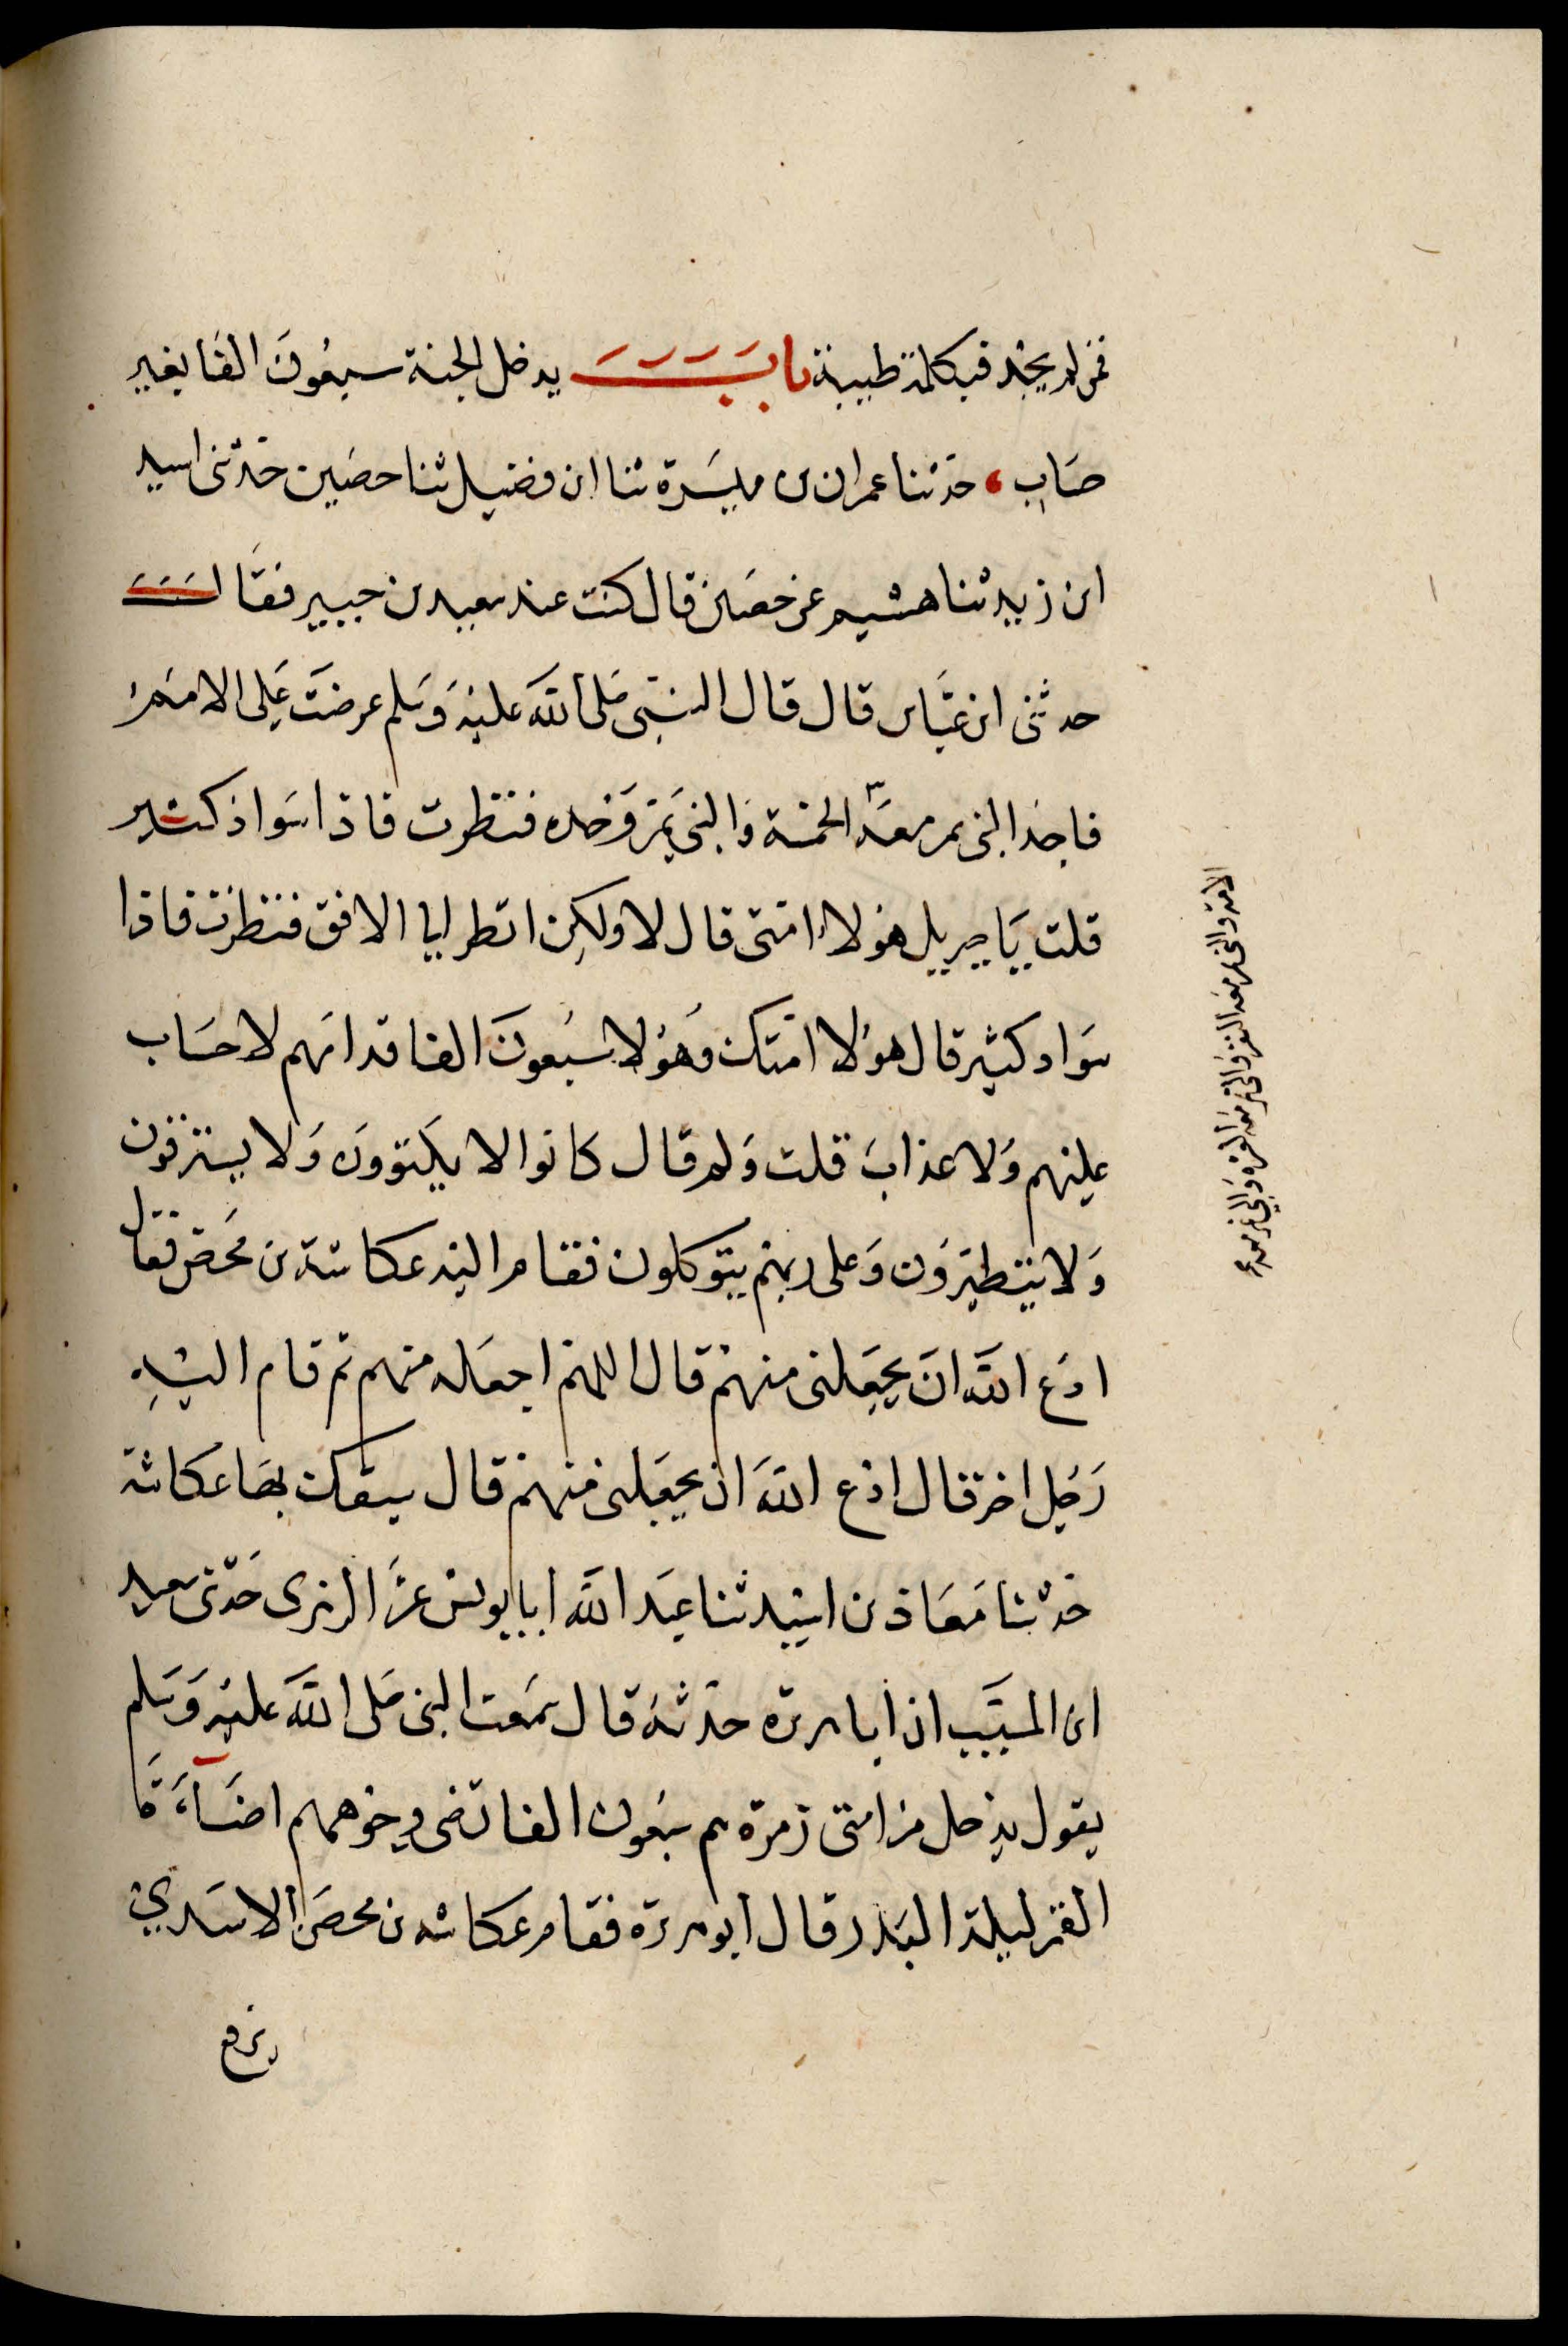 فمن لم يجد فبكلمة طيبة باب يدخل الجنة سبعون الفا بغير
حساب، حدثنا عمران بن ميسرة ثنا ابن فضيل ثنا حصين حدثنى اسيد
ابن زيد ثنا هشيم عن حصين قال كنت عند سعيد بن جبير فقال
حدثنى ابن عباس قال قال النبى صلى الله عليه وسلم عرضت على الامم
فاجد النبى يمر معه الخمسة والنبى يمر وحده فنظرت فاذا سواد كثير
قلت يا جبريل هؤلاء امتى قال لا ولكن انظر الى الافق فنظرت فاذا
سواد كثير قال هؤلا امتك وهؤلا سبعون الفا قدامهم لا حساب
عليهم ولا عذاب قلت ولم قال كانوا لا يكتوون ولا يسترقون
ولا يتطيرون وعلى ربهم يتوكلون فقام اليه عكاشة بن محصن فقال
ادع الله ان يجعلنى منهم قال اللهم اجعله منهم ثم قام اليه
رجل اخر قال ادع الله ان يجعلنى منهم قال سبقك بها عكاشة
حدثنا معاذ بن اسيد ثنا عبد الله ابا يونس عن الزهرى حدثنى سعيد
ابن المسيب ان ابا هريرة حدثه قال سمعت النبى صلى الله عليه وسلم
يقول يدخل من امتى زمرة هم سبعون الفا تضى وجوههم اضآءة
القمر ليلة البدر قال ابو هريرة فقام عكاشه بن محصن الاسدي
يرفع
الامة والنبى يمر معه النفر والنبى يمر معه العشرة والنبى يمر معه